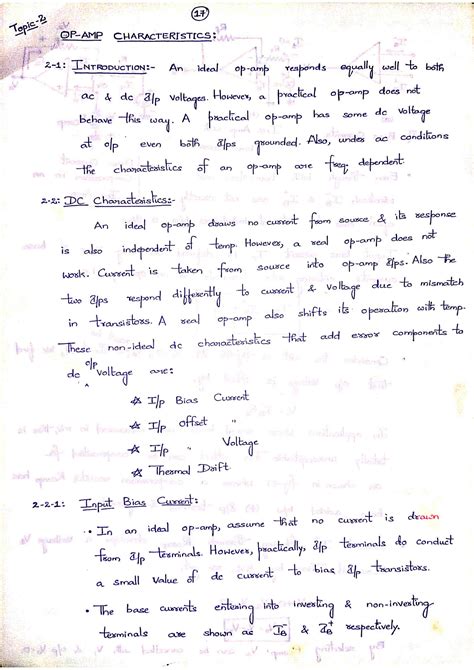 17
Topic-2
OP-AMP CHARACTERISTICS:
2-1: INTRODUCTION:- An ideal op-amp responds equally well to both
ac & dc I/p voltages. However, a practical op-amp does not
behave this way. A practical op-amp has some dc voltage
at o/p even both I/ps grounded. Also, under ac conditions
the characteristics of an op-amp are freq dependent.
2-2: DC Characteristics:-
An ideal op-amp draws no current from source & its response
is also independent of temp. However, a real op-amp does not
work. Current is taken from source into op-amp I/ps. Also the
two I/ps respond differently to current & voltage due to mismatch
in transistors. A real op-amp also shifts its operation with temp.
These non-ideal dc characteristics that add error components to
dc o/p voltage are:
☆ I/p Bias Current
☆ I/p offset "
☆ I/p " Voltage
☆ Thermal Drift
2-2-1: Input Bias Current:
• In an ideal op-amp, assume that no current is drawn
from I/p terminals. However, practically, I/p terminals do conduct
a small value of dc current to bias I/p transistors.
• The base currents entering into inverting & non-inverting
terminals are shown as I_B^- & I_B^+ respectively.